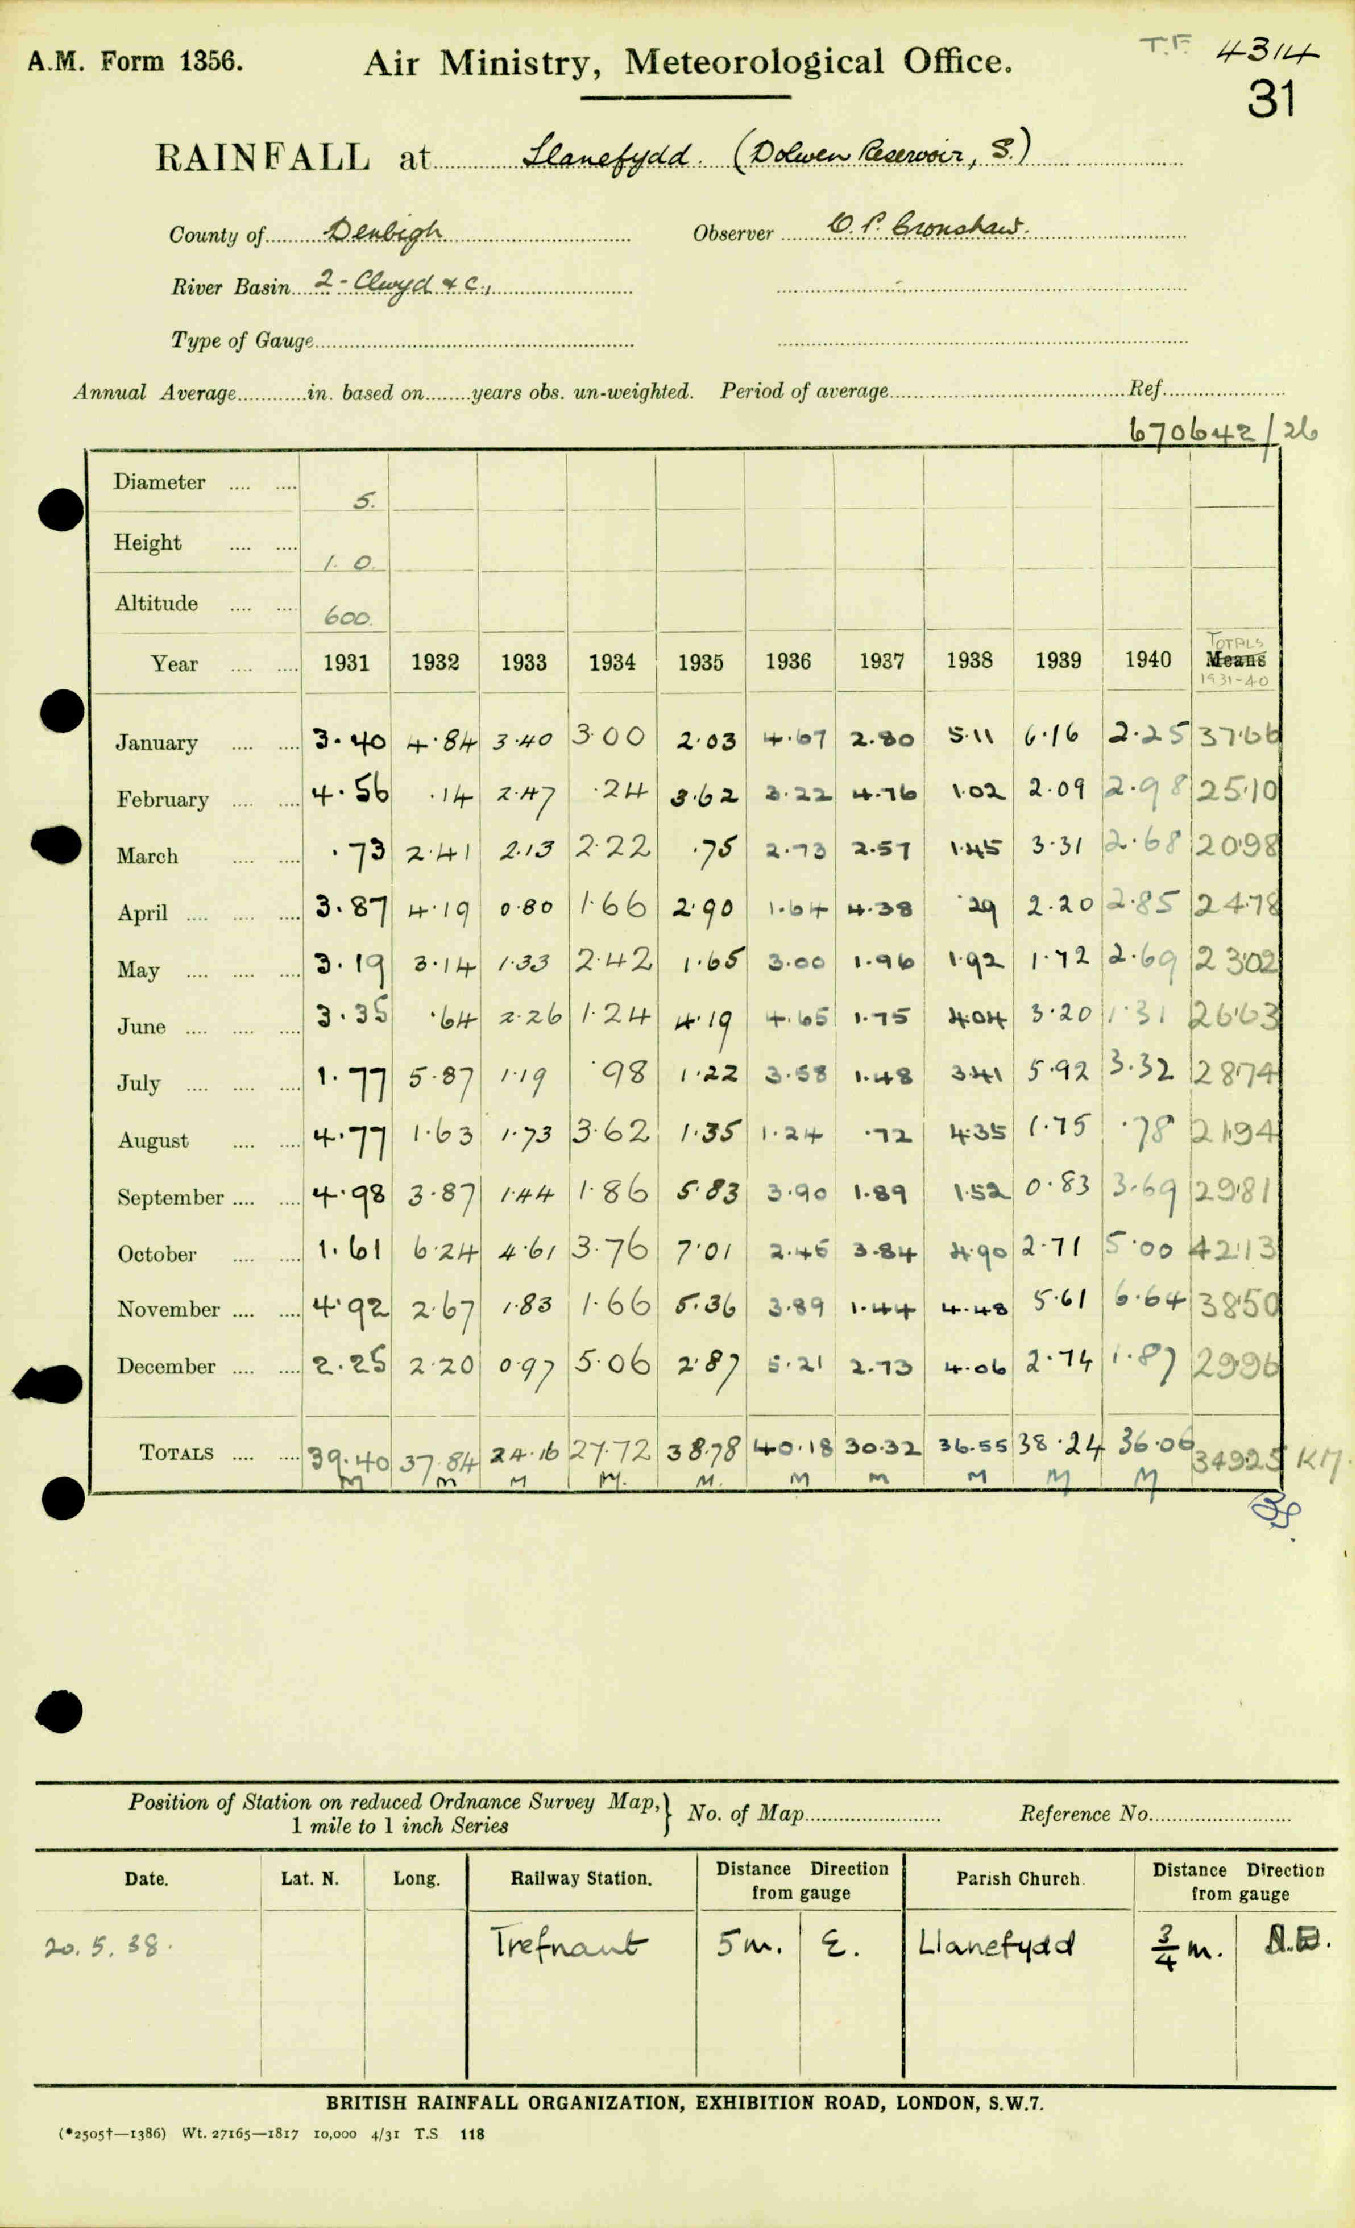 A.M. Form 1356.
Air Ministry, Meteorological Office.
T.F. 4314
31
RAINFALL at Llanefydd. (Dolwen Reservoir, S.)
County of Denbigh Observer O. P. Cronshaw.
River Basin 2 - Clwyd & C.,
Type of Gauge
Annual Average in. based on years obs. un-weighted. Period of average Ref.
670642/26
Diameter 5.
Height 1. 0.
Altitude 600.
Year 1931 1932 1933 1934 1935 1936 1937 1938 1939 1940 Means TOTALS 1931-40
January 3.40 4.84 3.40 3.00 2.03 4.67 2.80 5.11 6.16 2.25 37.66
February 4.56 .14 2.47 .24 3.62 3.22 4.76 1.02 2.09 2.98 25.10
March .73 2.41 2.13 2.22 .75 2.73 2.57 1.45 3.31 2.68 20.98
April 3.87 4.19 0.80 1.66 2.90 1.64 4.38 .29 2.20 2.85 24.78
May 3.19 3.14 1.33 2.42 1.65 3.00 1.96 1.92 1.72 2.69 23.02
June 3.35 .64 2.26 1.24 4.19 4.65 1.75 4.04 3.20 1.31 26.63
July 1.77 5.87 1.19 .98 1.22 3.58 1.48 3.41 5.92 3.32 28.74
August 4.77 1.63 1.73 3.62 1.35 1.24 .72 4.35 1.75 .78 21.94
September 4.98 3.87 1.44 1.86 5.83 3.90 1.89 1.52 0.83 3.69 29.81
October 1.61 6.24 4.61 3.76 7.01 2.45 3.84 4.90 2.71 5.00 42.13
November 4.92 2.67 1.83 1.66 5.36 3.89 1.44 4.48 5.61 6.64 38.50
December 2.25 2.20 0.97 5.06 2.87 5.21 2.73 4.06 2.74 1.87 29.96
TOTALS 39.40 37.84 24.16 27.72 38.78 40.18 30.32 36.55 38.24 36.06 349.25 KM.
M M M M. M. M M M M M
Position of Station on reduced Ordnance Survey Map, 1 mile to 1 inch Series } No. of Map Reference No.
Date. Lat. N. Long. Railway Station. Distance Direction from gauge Parish Church. Distance Direction from gauge
20. 5. 38. Trefnant 5 m. E. Llanefydd 3/4 m. N.E.
BRITISH RAINFALL ORGANIZATION, EXHIBITION ROAD, LONDON, S.W.7.
(*2505†—1386) Wt. 27165—1817 10,000 4/31 T.S 118